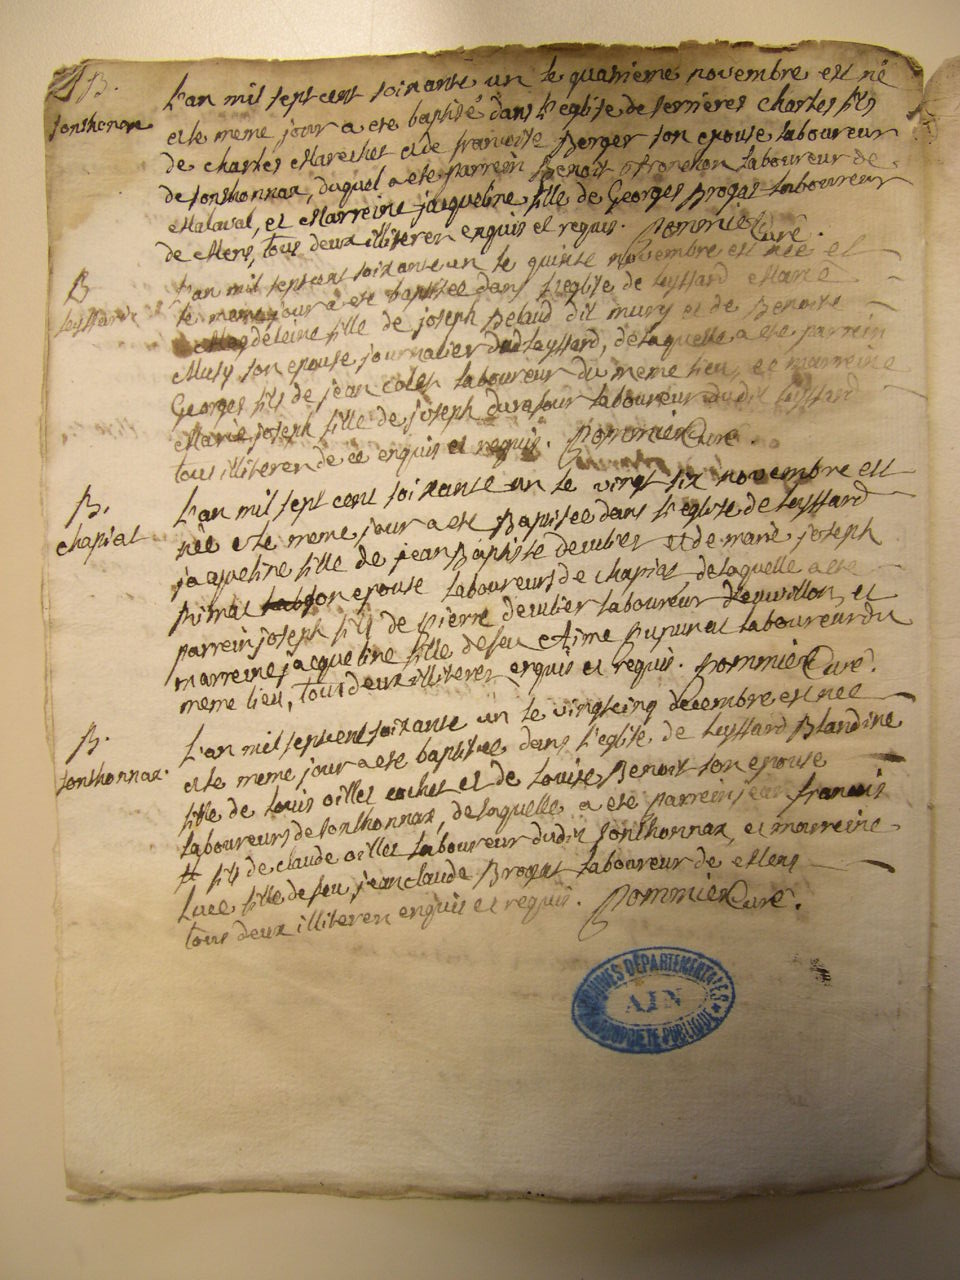 B.
sonthonax
L'an mil sept cent soixante un le quatrieme novembre est né
et le meme jour a ete baptisé dans l'eglise de serrieres charles fils
de charles Marechet et de francoise Berger son epouse laboureur
de sonthonnax, duquel a ete parrein Benoit laboureur de
Malaval, et Marreine jacqueline fille de Georges Brogat laboureur
de Mens, tous deux illiteren enquis et requis. Pommier Curé.
B
leyssard
L'an mil sept cent soixante un le quinze novembre est née et
le meme jour a ete baptisée dans l'eglise de leyssard Marie
Magdeleine fille de joseph Belaud dit mury et de Benoite
Musy son epouse journalier dud leyssard, de laquelle a ete parrein
Georges fils de jean colet laboureur du meme lieu, et marreine
Marie joseph fille de joseph dufour laboureur dudit leyssard
tous illiteren de ce enquis et requis. Pommier Curé.
B.
chapiat
L'an mil sept cent soixante un le vingt six novembre est
née et le meme jour a ete Baptisée dans l'eglise de leyssard
jaqueline fille de jean Baptiste et de marie joseph
son epouse laboureurs de chapiat de laquelle a ete
parrein joseph fils de pierre laboureur et
marreine jacqueline fille de feu Aime pupunat laboureur du
meme lieu, tous deux illiteren enquis et requis. Pommier Curé.
B.
sonthonnax.
L'an mil sept cent soixante un le vingt cinq decembre est née
et le meme jour a ete baptisée dans l'eglise de leyssard Blandine
fille de louis oillet cochet et de louise Benoit son epouse
laboureurs de sonthonnax, de laquelle a ete parrein jean francois
fils de claude oillet laboureur dudit sonthonnax, et marreine
luce fille de feu jean claude Brogat laboureur de Mens
tous deux illiteren enquis et requis. Pommier Curé.
ARCHIVES DÉPARTEMENTALES
AIN
PROPRIÉTÉ PUBLIQUE